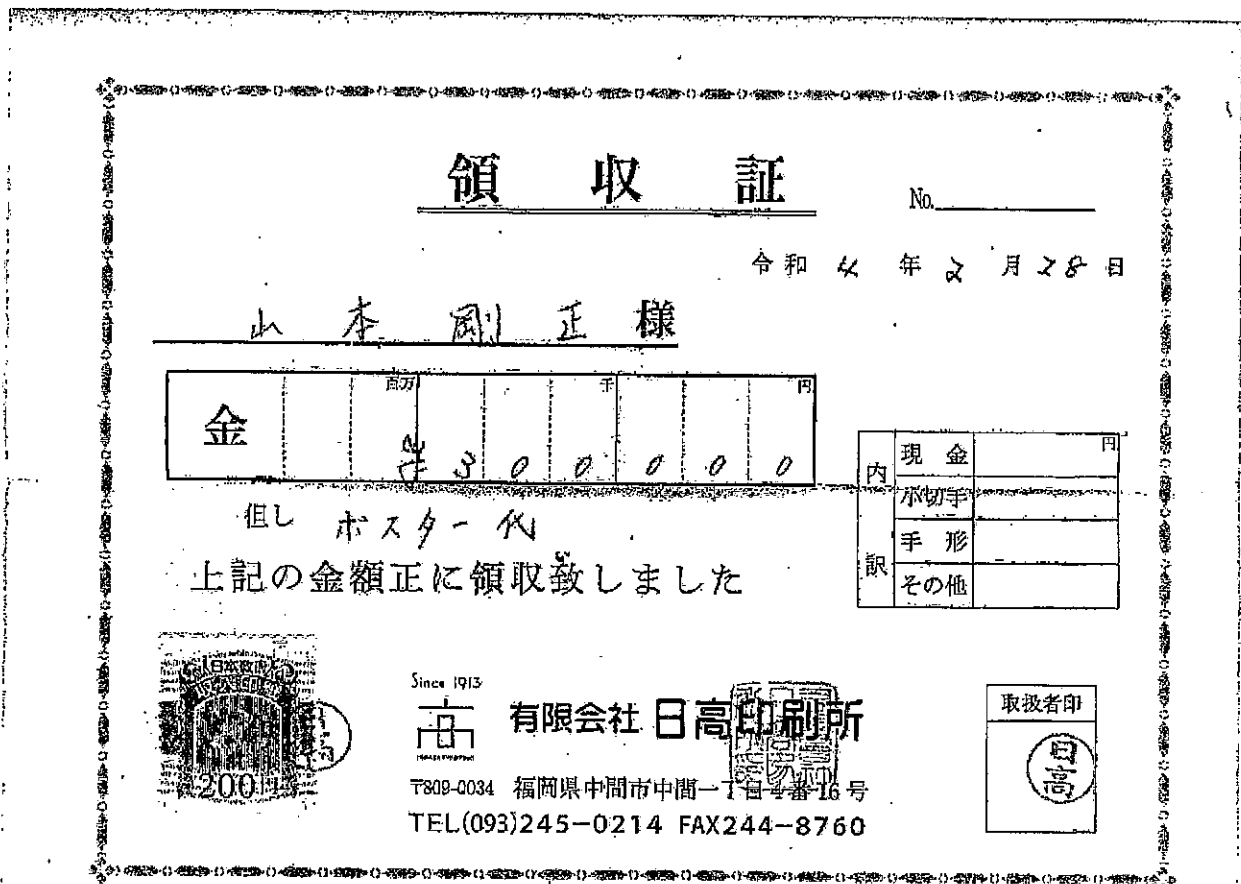 領収証
No.
令和 4 年 2 月 28 日
山本 剛正 様
百万 千 円
金 ¥300000
但し ポスター代
上記の金額正に領収致しました
内訳
現金 円
小切手
手形
その他
日本政府
200円
Since 1913
有限会社 日高印刷所
〒809-0034 福岡県中間市中間一丁目4番16号
TEL(093)245-0214 FAX244-8760
取扱者印
日高